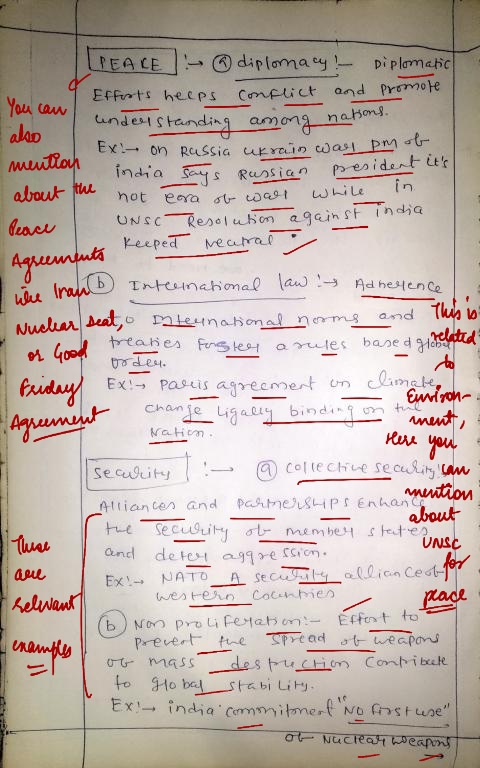 PEACE !→ ⓐ diplomacy!— Diplomatic
Efforts helps conflict and promote
understanding among nations.
Ex!→ on Russia ukrain war pm of
india says Russian president it's
not eora of war while in
UNSC Resolution against india
Keeped Neutral.
ⓑ International law !→ Adherence
to International norms and
treaties foster a rules based global
order.
Ex!→ Paris agreement on climate
change ligally binding on the
Nation.
Security !→ ⓐ collective security!
Alliances and partnerships enhance
the security of member states
and deter aggression.
Ex!→ NATO A security alliance of
western countries
ⓑ Non proliferation:— Effort to
prevent the spread of weapons
of mass destruction contribute
to global stability.
Ex!→ india commitment "No first use"
of Nuclear weapons
You can
also
mention
about the
Peace
Agreements
like Iran
Nuclear Deal,
or Good
Friday
Agreement
This is
related
to
Environ-
ment,
Here you
can
mention
about
UNSC
for
peace
These
are
relevant
examples